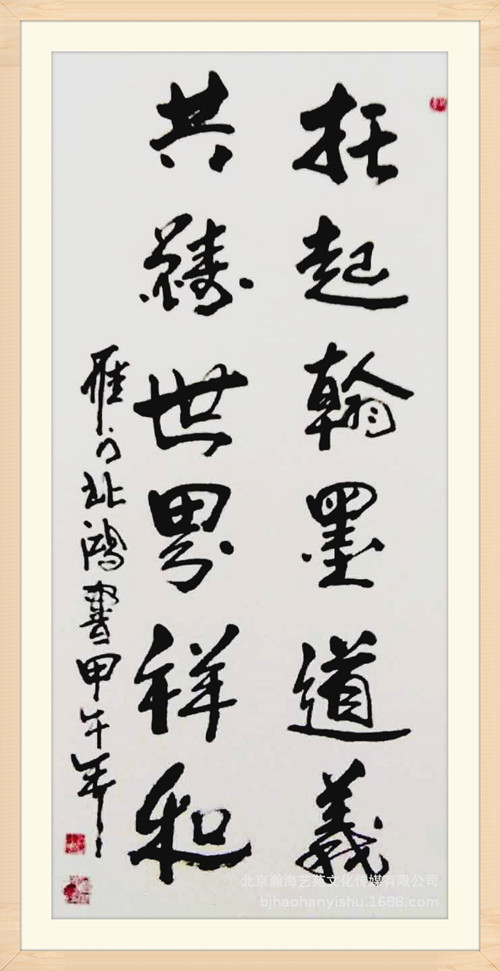 托起翰墨道義
共鑄世界祥和
雁门北鴻書甲午年
北京瀚海艺苑文化传媒有限公司
bjhaohanyishu.1688.com